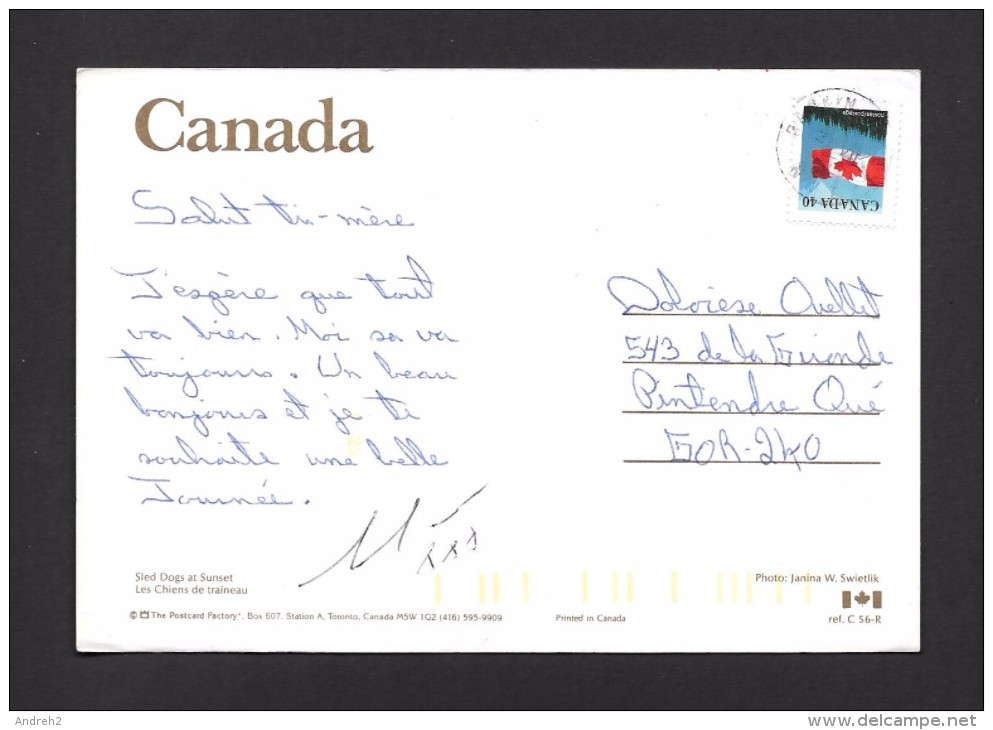 Canada
Salut
J'espère que tout
va bien. Moi sa va
toujours. Un beau
bonjours et je te
souhaite une belle
Journée.
xxx
postes/postage
CANADA 40
Ouellet
543 de la
Pintendre Qué
G0R-2K0
Sled Dogs at Sunset
Les Chiens de traineau
Photo: Janina W. Swietlik
© The Postcard Factory", Box 607, Station A, Toronto, Canada M5W 1G2 (416) 595-9909
Printed in Canada
ref. C 56-R
Andreh2
www.delcampe.net